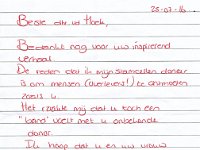 25-07-16
Beste dhr. vd Hoek,
Bedankt nog voor uw inspirerend
verhaal.
De reden dat ik mijn stamcellen doneer
is om mensen (overlevers!) te ontmoeten
zoals u.
Het raakte mij dat u toch een
"band" voelt met u onbekende
donor.
Ik hoop dat u en uw vrouw